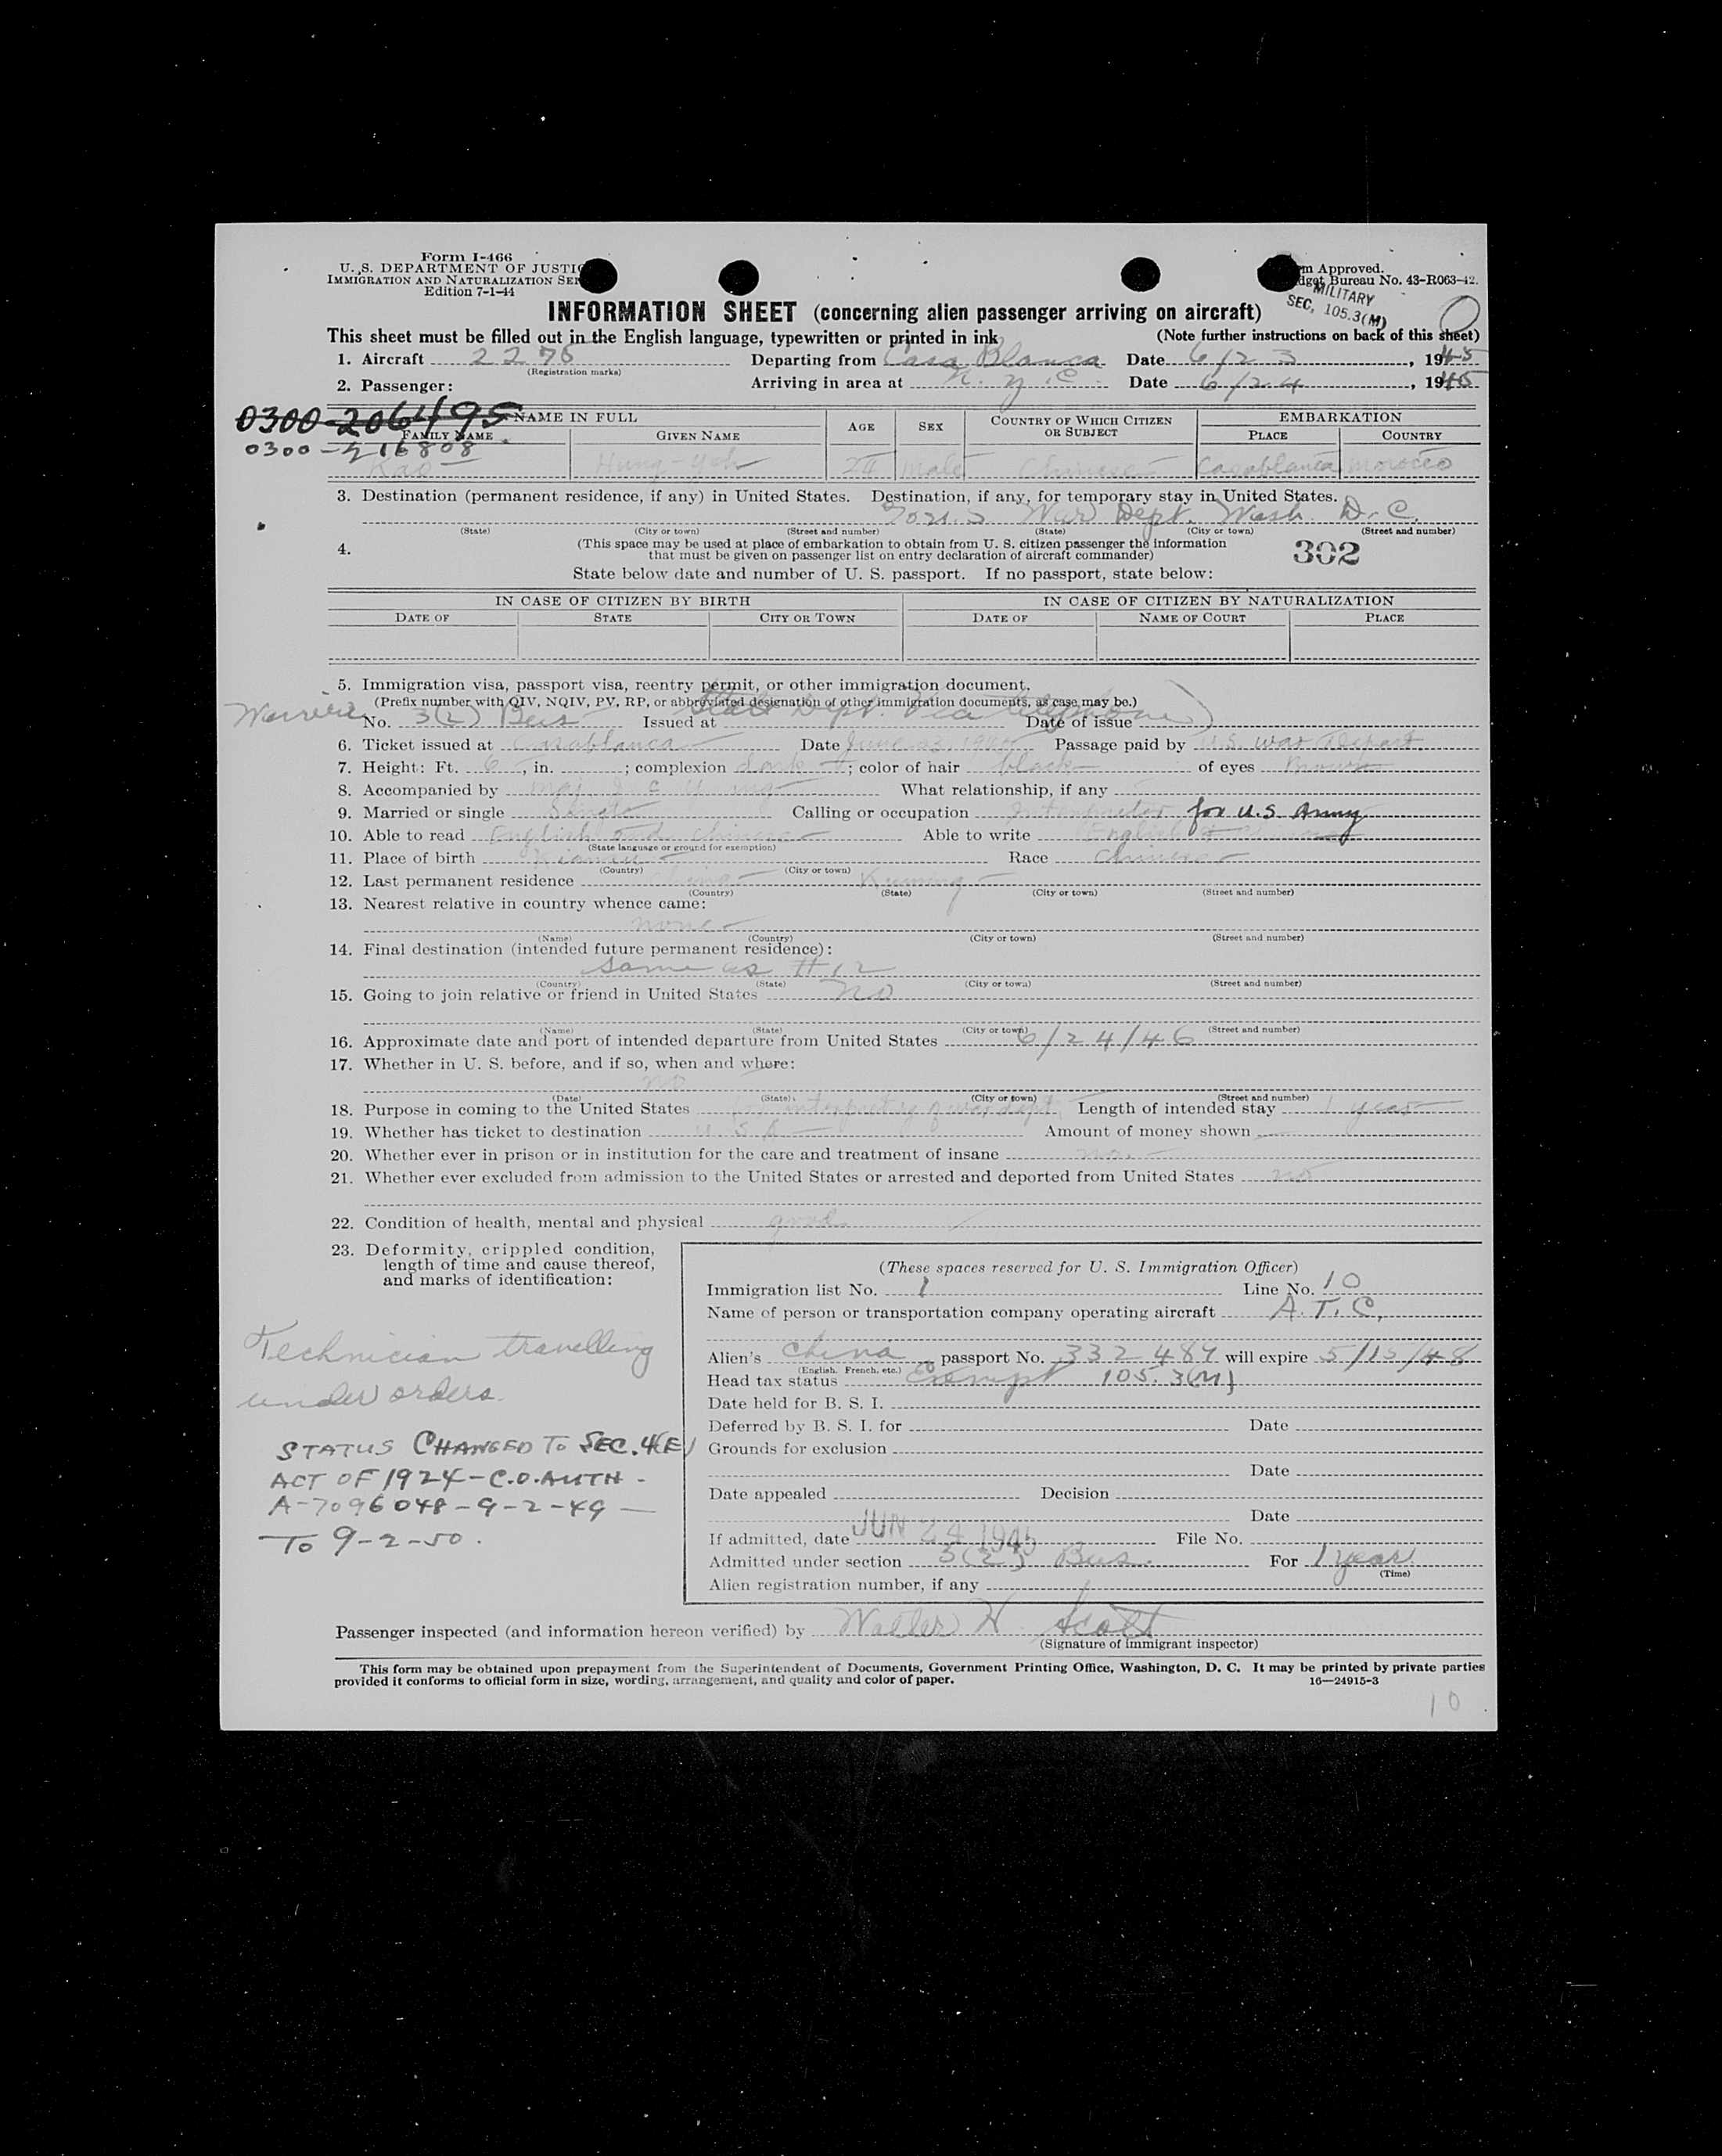 Form I-466
U. S. DEPARTMENT OF JUSTIC
IMMIGRATION AND NATURALIZATION SER
Edition 7-1-44
m Approved.
dget Bureau No. 43-R063-42.
MILITARY
SEC. 105.3(M)
INFORMATION SHEET (concerning alien passenger arriving on aircraft)
This sheet must be filled out in the English language, typewritten or printed in ink
(Note further instructions on back of this sheet)
1. Aircraft 2276 Departing from Casa Blanca Date 6/23, 1945
(Registration marks)
2. Passenger: Arriving in area at N. Y. C. Date 6/24, 1945
0300-206495
0300-216808
NAME IN FULL AGE SEX COUNTRY OF WHICH CITIZEN OR SUBJECT EMBARKATION
FAMILY NAME GIVEN NAME PLACE COUNTRY
Kao Hung-Yoh Male Chinese Casablanca Morocco
3. Destination (permanent residence, if any) in United States. Destination, if any, for temporary stay in United States.
War Dept. Wash. D.C.
(State) (City or town) (Street and number) (State) (City or town) (Street and number)
4. (This space may be used at place of embarkation to obtain from U. S. citizen passenger the information
that must be given on passenger list on entry declaration of aircraft commander)
302
State below date and number of U. S. passport. If no passport, state below:
IN CASE OF CITIZEN BY BIRTH IN CASE OF CITIZEN BY NATURALIZATION
DATE OF STATE CITY OR TOWN DATE OF NAME OF COURT PLACE
5. Immigration visa, passport visa, reentry permit, or other immigration document.
(Prefix number with QIV, NQIV, PV, RP, or abbreviated designation of other immigration documents, as case may be.)
No. 3(2) Bus Issued at State Dept. Via telephone) Date of issue
6. Ticket issued at Casablanca Date June 23, 1945 Passage paid by U.S. War Depart.
7. Height: Ft. 6, in. ; complexion dark; color of hair black of eyes Brown
8. Accompanied by Maj. Young What relationship, if any
9. Married or single Single Calling or occupation Interpreter for U.S. Army
10. Able to read English and Chinese Able to write English & Chinese
(State language or ground for exemption)
11. Place of birth Race Chinese
(Country) (City or town)
12. Last permanent residence China Kuming
(Country) (State) (City or town) (Street and number)
13. Nearest relative in country whence came:
none
(Name) (Country) (City or town) (Street and number)
14. Final destination (intended future permanent residence):
same as #12
(Country) (State) (City or town) (Street and number)
15. Going to join relative or friend in United States no
(Name) (State) (City or town) (Street and number)
16. Approximate date and port of intended departure from United States 6/24/46
17. Whether in U. S. before, and if so, when and where:
no
(Date) (State) (City or town) (Street and number)
18. Purpose in coming to the United States Length of intended stay 1 year
19. Whether has ticket to destination U.S.A. Amount of money shown
20. Whether ever in prison or in institution for the care and treatment of insane no
21. Whether ever excluded from admission to the United States or arrested and deported from United States no
22. Condition of health, mental and physical good
23. Deformity, crippled condition,
length of time and cause thereof,
and marks of identification:
Technician travelling
under orders.
STATUS CHANGED TO SEC. 4(E)
ACT OF 1924-C.O. AUTH-
A-7096048-9-2-49-
To 9-2-50.
(These spaces reserved for U. S. Immigration Officer)
Immigration list No. 1 Line No. 10
Name of person or transportation company operating aircraft A.T.C.
Alien's China passport No. 332487 will expire 5/15/48
(English, French, etc.)
Head tax status Exempt 105.3(M)
Date held for B. S. I.
Deferred by B. S. I. for Date
Grounds for exclusion
Date
Date appealed Decision
Date
If admitted, date JUN 24 1945 File No.
Admitted under section 3(2) Bus. For 1 year
(Time)
Alien registration number, if any
Passenger inspected (and information hereon verified) by Walter H Scott
(Signature of immigrant inspector)
This form may be obtained upon prepayment from the Superintendent of Documents, Government Printing Office, Washington, D. C. It may be printed by private parties
provided it conforms to official form in size, wording, arrangement, and quality and color of paper. 16—24915-3
10